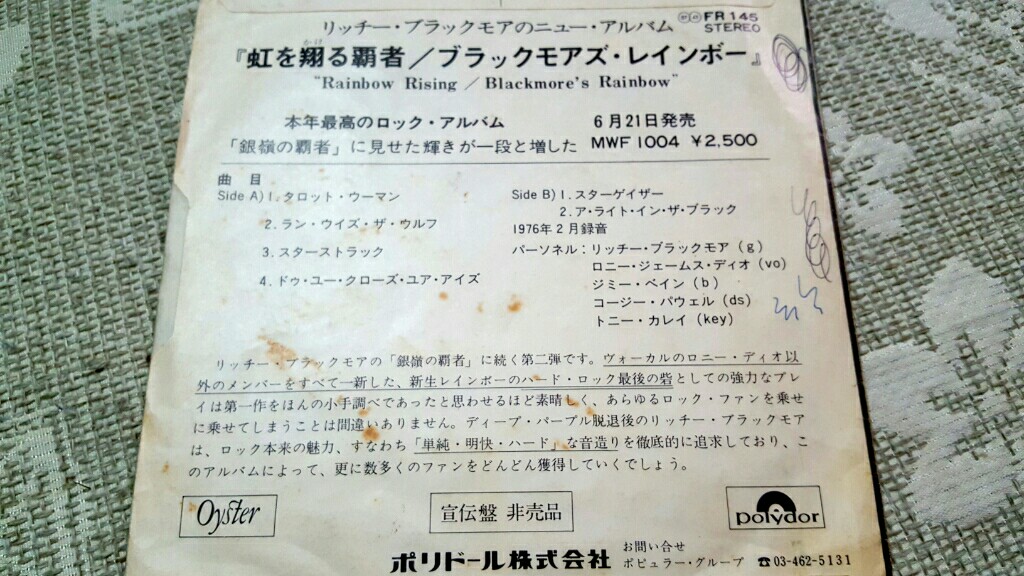 リッチー・ブラックモアのニュー・アルバム
ⓅⓄ FR 145
STEREO
『虹を翔る覇者／ブラックモアズ・レインボー』
かけ
"Rainbow Rising / Blackmore's Rainbow"
本年最高のロック・アルバム 6月21日発売
「銀嶺の覇者」に見せた輝きが一段と増した MWF 1004 ¥2,500
曲目
Side A) 1. タロット・ウーマン
2. ラン・ウイズ・ザ・ウルフ
3. スターストラック
4. ドゥ・ユー・クローズ・ユア・アイズ
Side B) 1. スターゲイザー
2. ア・ライト・イン・ザ・ブラック
1976年2月録音
パーソネル：リッチー・ブラックモア (g)
ロニー・ジェームス・ディオ (vo)
ジミー・ベイン (b)
コージー・パウェル (ds)
トニー・カレイ (key)
リッチー・ブラックモアの「銀嶺の覇者」に続く第二弾です。ヴォーカルのロニー・ディオ以
外のメンバーをすべて一新した、新生レインボーのハード・ロック最後の砦としての強力なプレ
イは第一作をほんの小手調べであったと思わせるほど素晴しく、あらゆるロック・ファンを乗せ
に乗せてしまうことは間違いありません。ディープ・パープル脱退後のリッチー・ブラックモア
は、ロック本来の魅力、すなわち「単純・明快・ハード」な音造りを徹底的に追求しており、こ
のアルバムによって、更に数多くのファンをどんどん獲得していくでしょう。
Oyster
宣伝盤 非売品
polydor
ポリドール株式会社
お問い合せ
ポピュラー・グループ ☎03-462-5131